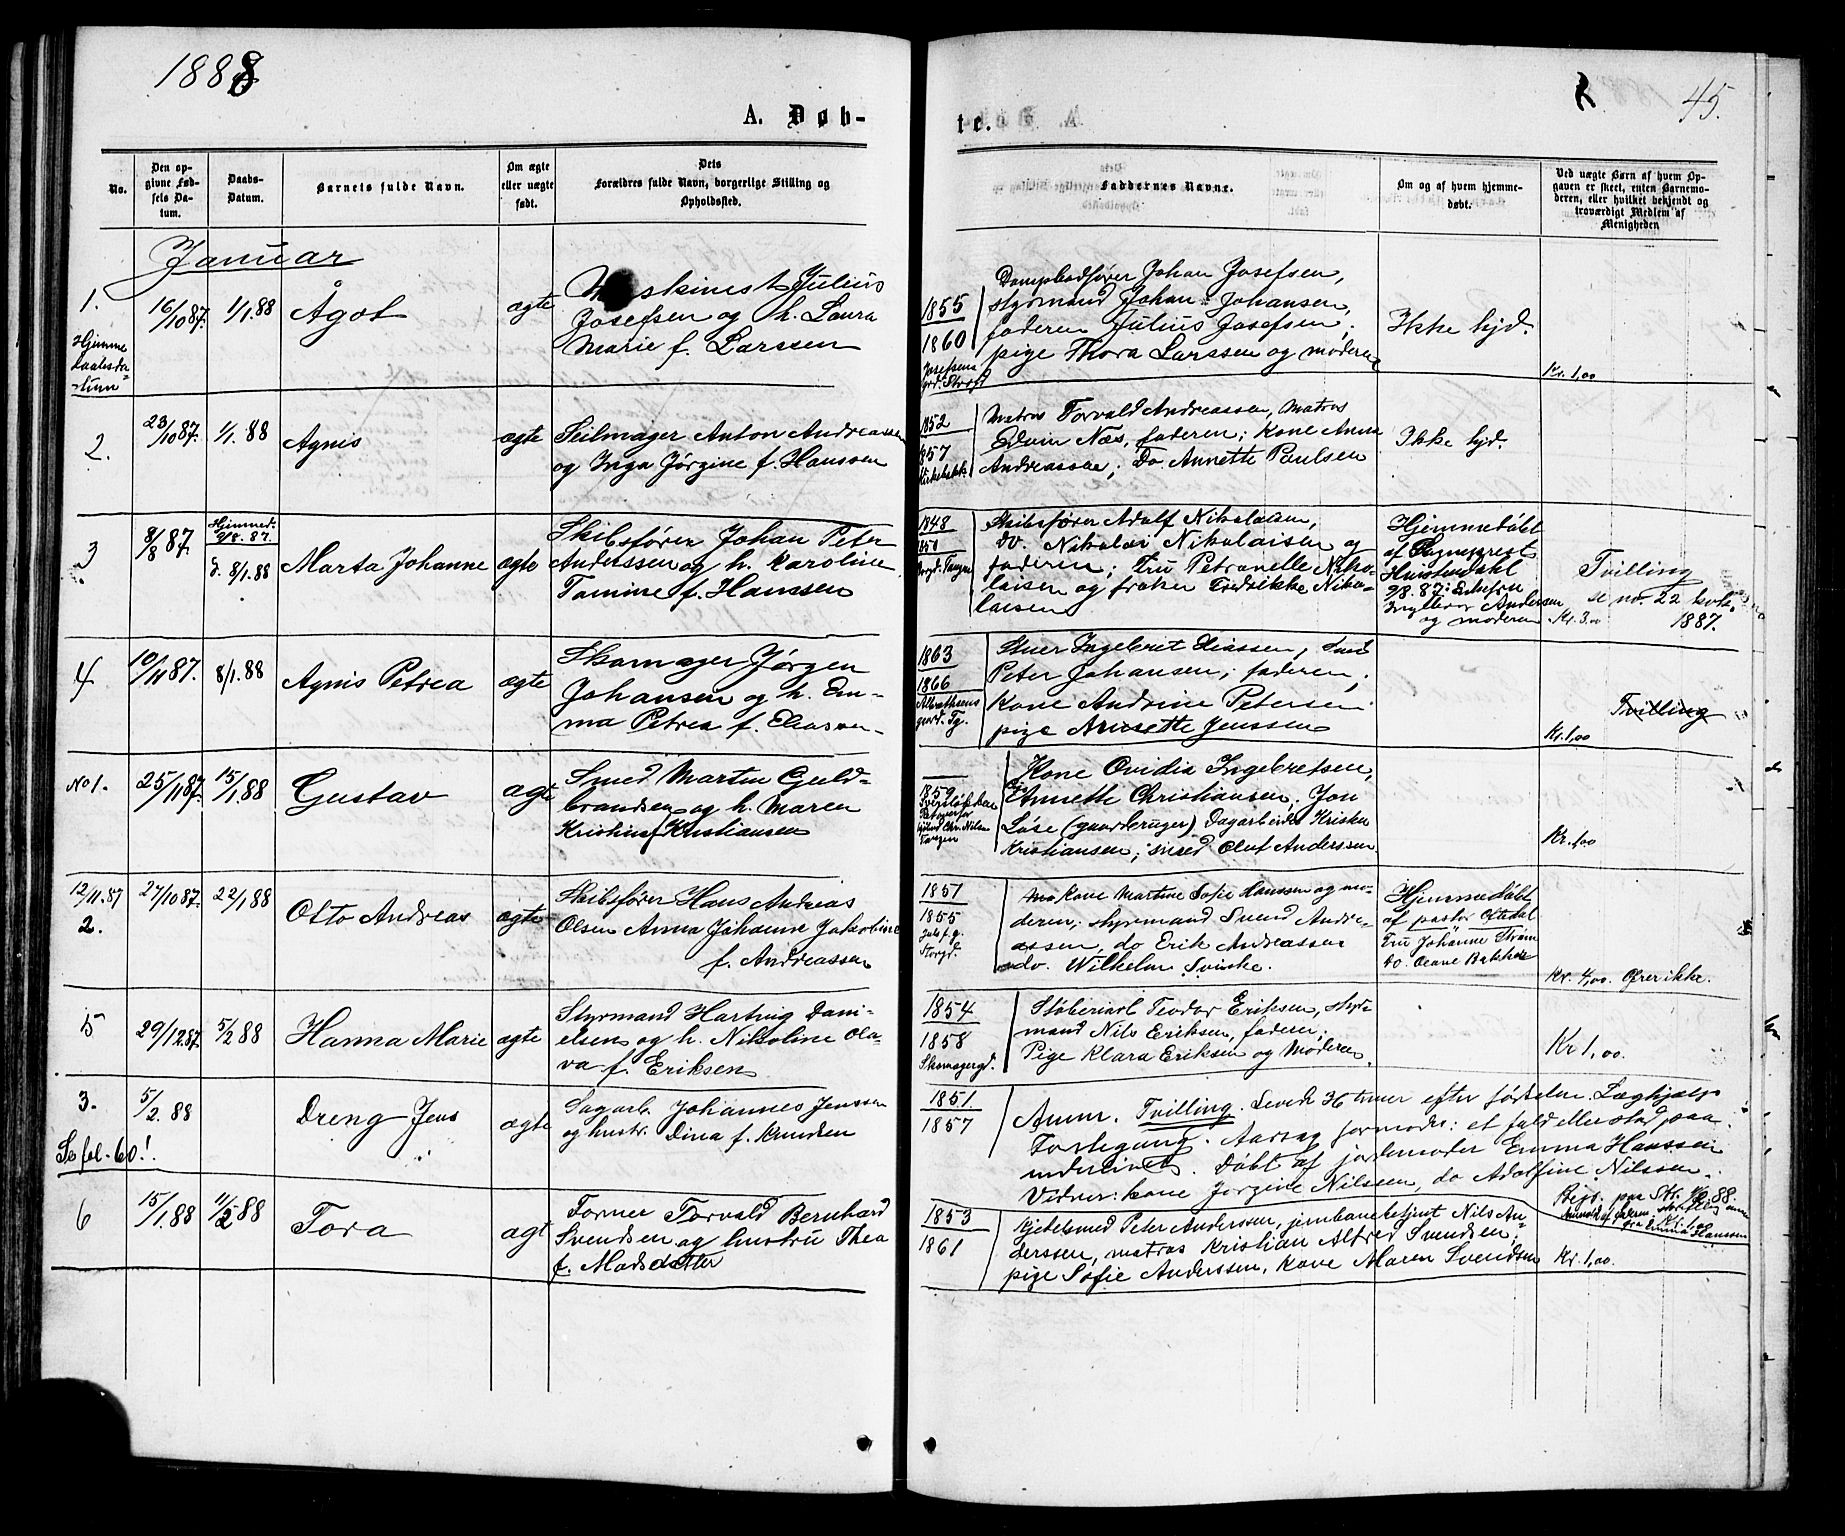 1888
45.
A. Døb-
te.
No.
Den op-
givne Fød-
sels Da-
tum.
Daabs-
Datum.
Barnets fulde Navn.
Om ægte
eller uægte
født.
Dets
Forældres fulde Navn, borgerlige Stilling og
Opholdssted.
Faddernes Navne.
Om og af hvem hjemme-
døbt.
Ved uægte Børn af hvem Op-
gaven er skeet, enten Barnemo-
deren, eller hvilket bekjendt og
troværdigt Medlem af
Menigheden
Januar
1.
Hjemme
daabsda-
tum
16/10 87.
1/1.88
Ågot
ægte
Maskinist Julius
Josefsen og h. Laura
Marie f. Larssen
1855
1860
Josefsens
grd. Storgd
Dampbadfører Johan Josefsen,
styrmand Johan Johansen,
faderen Julius Josefsen;
pige Thora Larssen og moderen
Ikke hjd.
Kr. 1,00
2.
23/10 87.
1/1. 88
Agnis
ægte
Seilmager Anton Andreassen
og Inga Jørgine f. Hanssen
1852
1857
Kirkebakk
Matros Torvald Andreassen, Matros
Edam Næs, faderen; Kone Anna
Andreassen; Do. Annette Paulsen
Ikke hjd.
3
8/8 87
Hjemmed.
9/8. 87.
d. 8/1. 88
Marta Johanne
ægte
Skibsfører Johan Peter
Anderssen og h. Karoline
Tomine f. Hanssen
1848
1850
Storgd. Tangen
Skibsfører Adolf Nikolaisen,
do. Nikolai Nikolaisen og
faderen; Fru Petronelle Niko-
laisen og frøken Fredrikke Niko-
laisen
Hjemmedøbt
af Sogneprest
Hvistendahl
9/8. 87: Enkefru
Andersen
og moderen
Tvilling
se no. 22 hovb.
1887.
Kr. 3,00
4
10/11 87.
8/1. 88
Agnis Petrea
ægte
Skomager Jørgen
Johansen og h. Em-
ma Petrea f. Eliassen
1863
1866
Albrethsens
gaard. Tg.
Stuer Ingebret Eliassen, Smed
Peter Johansen; faderen;
Kone Andrine Petersen
pige Annette Jenssen
Tvilling
Kr. 1,00
No 1.
25/11 87.
15/1. 88
Gustav
ægte
Smed Martin Guld-
brandsen og h. Maren
Kristine f. Kristiansen
1859
Chr. Nilsen
Tangen
Kone Ovidia Ingebretsen,
Annette Christiansen; Jon
Løse (gaardbruger) Dagarbeider Kristen
Kristiansen; smed Oluf Anderssen
Kr. 1,00
12/11. 87
2.
27/10 87.
22/1 88
Otto Andreas
ægte
Skibsfører Hans Andreas
Olsen Anna Johanne Jakobine
f. Andreassen
1851
1855
Storgd.
Kone Martine Sofie Hanssen og mo-
deren; styrmand Svend Andre-
assen, do Erik Andreassen
do. Wilhelm Svinke.
Hjemmedøbt
af pastor Oftedal
Fru Johanne Strøm
do. Oleane Bakke
Kr. 4,00. Ofrer ikke.
5
29/12 87.
5/2 88
Hanna Marie
ægte
Styrmand Hartvig Dani-
elsen og h. Nikoline Ola-
va f. Eriksen
1854
1858
Skomagergd.
Støberiarb. Teodor Eriksen, styr-
mand Nils Eriksen, faderen;
Pige Klara Eriksen og Moderen
Kr 1,00.
3.
Se fol. 60!.
5/2. 88
Dreng Jens
ægte
Dagarb. Johannes Jenssen
og hustr. Dina f. Knudsen
1851
1857
Anm. Tvilling. Levede 36 timer efter fødselen. Læghjælp
Forlegang. Aarsag formodes: et fald eller stød paa
underlivet. Døbt af jordemoder Emma Hanssen
Vidner: kone Jørgine Nilssen, do Adolfine Nilssen.
Kr. 1,00
fra Emma Hanssen
6
15/1. 88
11/2 88
Tora
ægt
Former Torvald Bernhard
Svendsen og hustru Thea
f. Madsdatter
1853
1861
Gjørtelsmed Peter Anderssen, jernbanebetjent Nils An-
derssen, matros Kristian Alfred Svendsen;
pige Sofie Anderssen, Kone Maren Svendsen
Kr. 1,00.